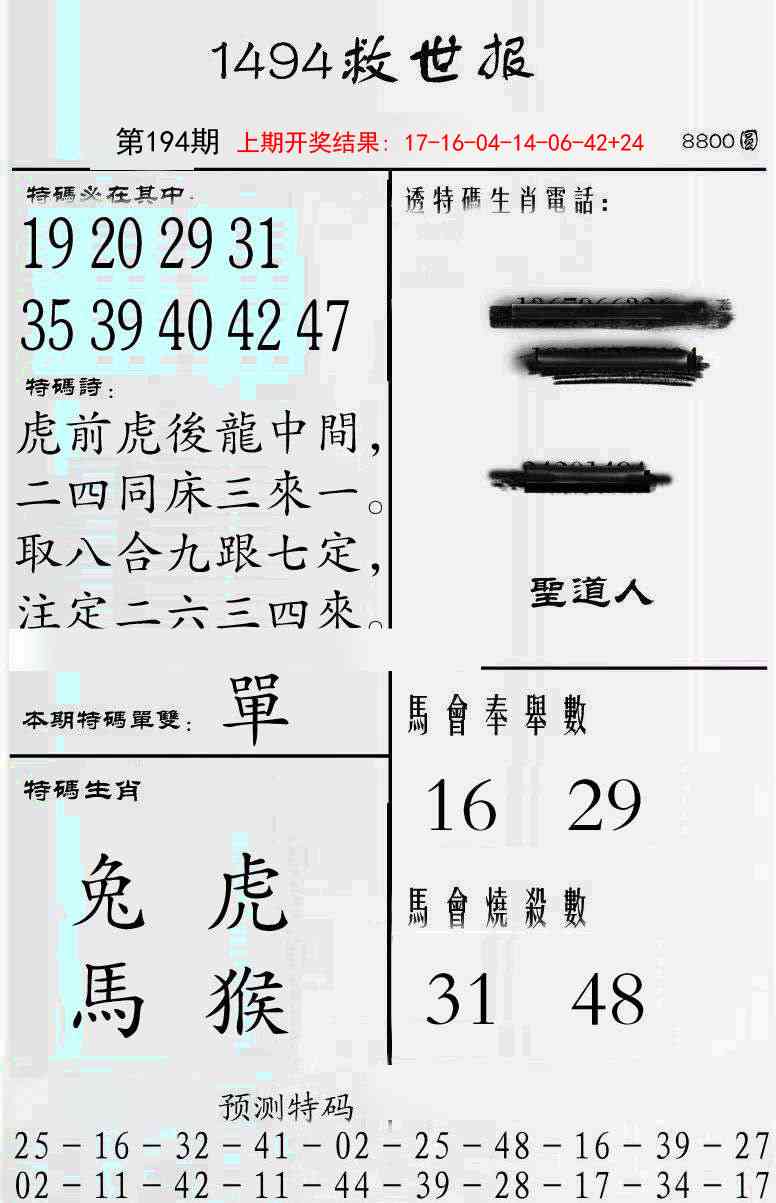 1494救世报
第194期 上期开奖结果：17-16-04-14-06-42+24 8800圆
特碼必在其中：
19 20 29 31
35 39 40 42 47
特碼詩：
虎前虎後龍中間，
二四同床三來一。
取八合九跟七定，
注定二六三四來。
本期特碼單雙：單
特碼生肖
兔 虎
馬 猴
透特碼生肖電話：
聖道人
馬會奉舉數
16 29
馬會燒殺數
31 48
预测特码
25－16－32－41－02－25－48－16－39－27
02－11－42－11－44－39－28－17－34－17